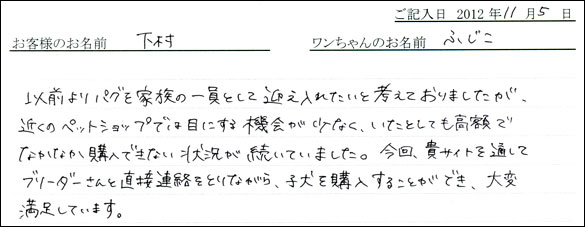 ご記入日 2012年11月5日
お客様のお名前 下村 ワンちゃんのお名前 ふじこ
以前よりパグを家族の一員として迎え入れたいと考えておりましたが、
近くのペットショップでは目にする機会が少なく、いたとしても高額で
なかなか購入できない状況が続いていました。今回、貴サイトを通して
ブリーダーさんと直接連絡をとりながら、子犬を購入することができ、大変
満足しています。